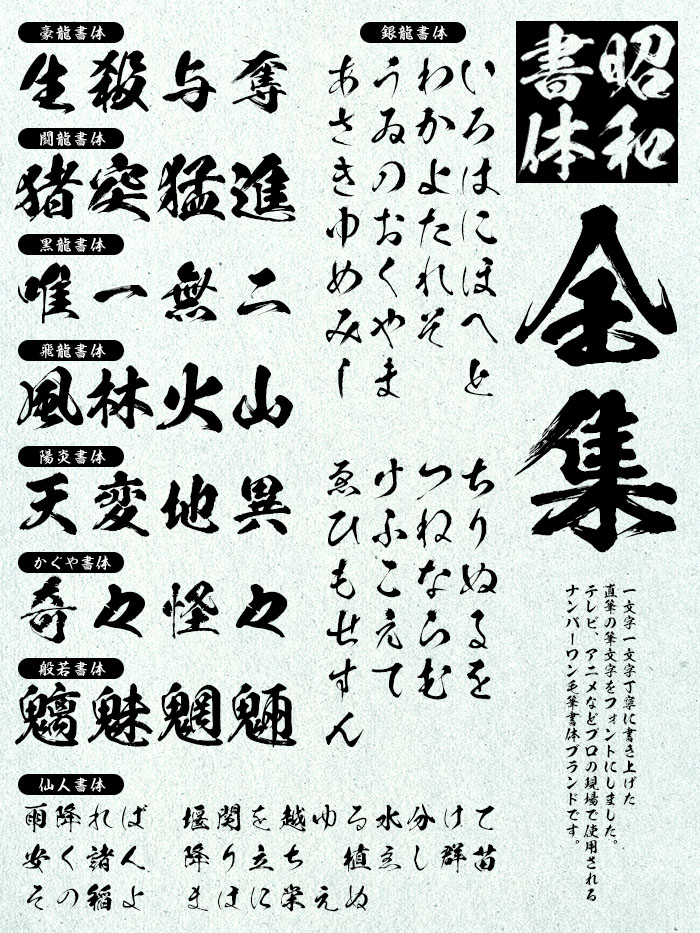 昭和
書体
全集
一文字一文字丁寧に書き上げた
直筆の筆文字をフォントにしました。
テレビ、アニメなどプロの現場で使用される
ナンバーワン毛筆書体ブランドです。
銀龍書体
いろはにほへと ちりぬるを
わかよたれそ つねならむ
うゐのおくやま けふこえて
あさきゆめみし ゑひもせすん
豪龍書体
生殺与奪
闘龍書体
猪突猛進
黒龍書体
唯一無二
飛龍書体
風林火山
陽炎書体
天変地異
かぐや書体
奇々怪々
般若書体
魑魅魍魎
仙人書体
雨降れば 堰関を越ゆる水分けて
安く諸人 降り立ち 植ゑし群苗
その稲よ まほに栄えぬ